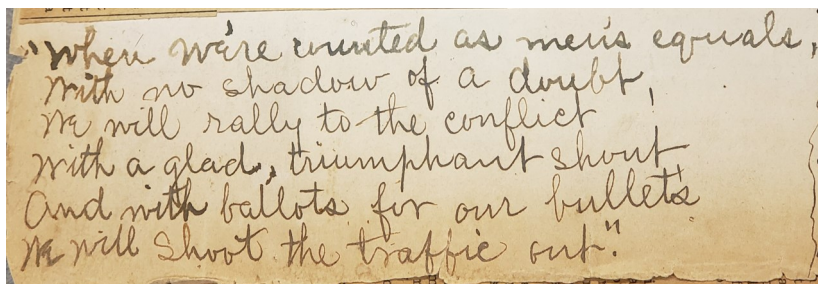 "When we're counted as men's equals,
With no shadow of a doubt,
We will rally to the conflict
With a glad, triumphant shout
And with ballots for our bullets
We will shoot the traffic out".